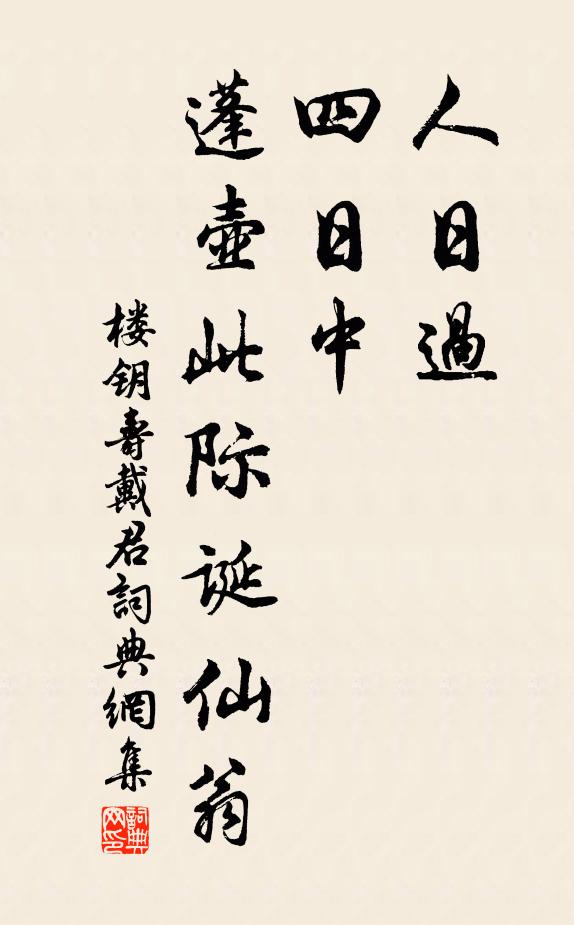 人日過
四日中
蓬壺此际誕仙翁
楼钥壽戴君詞典網集
詞典网印